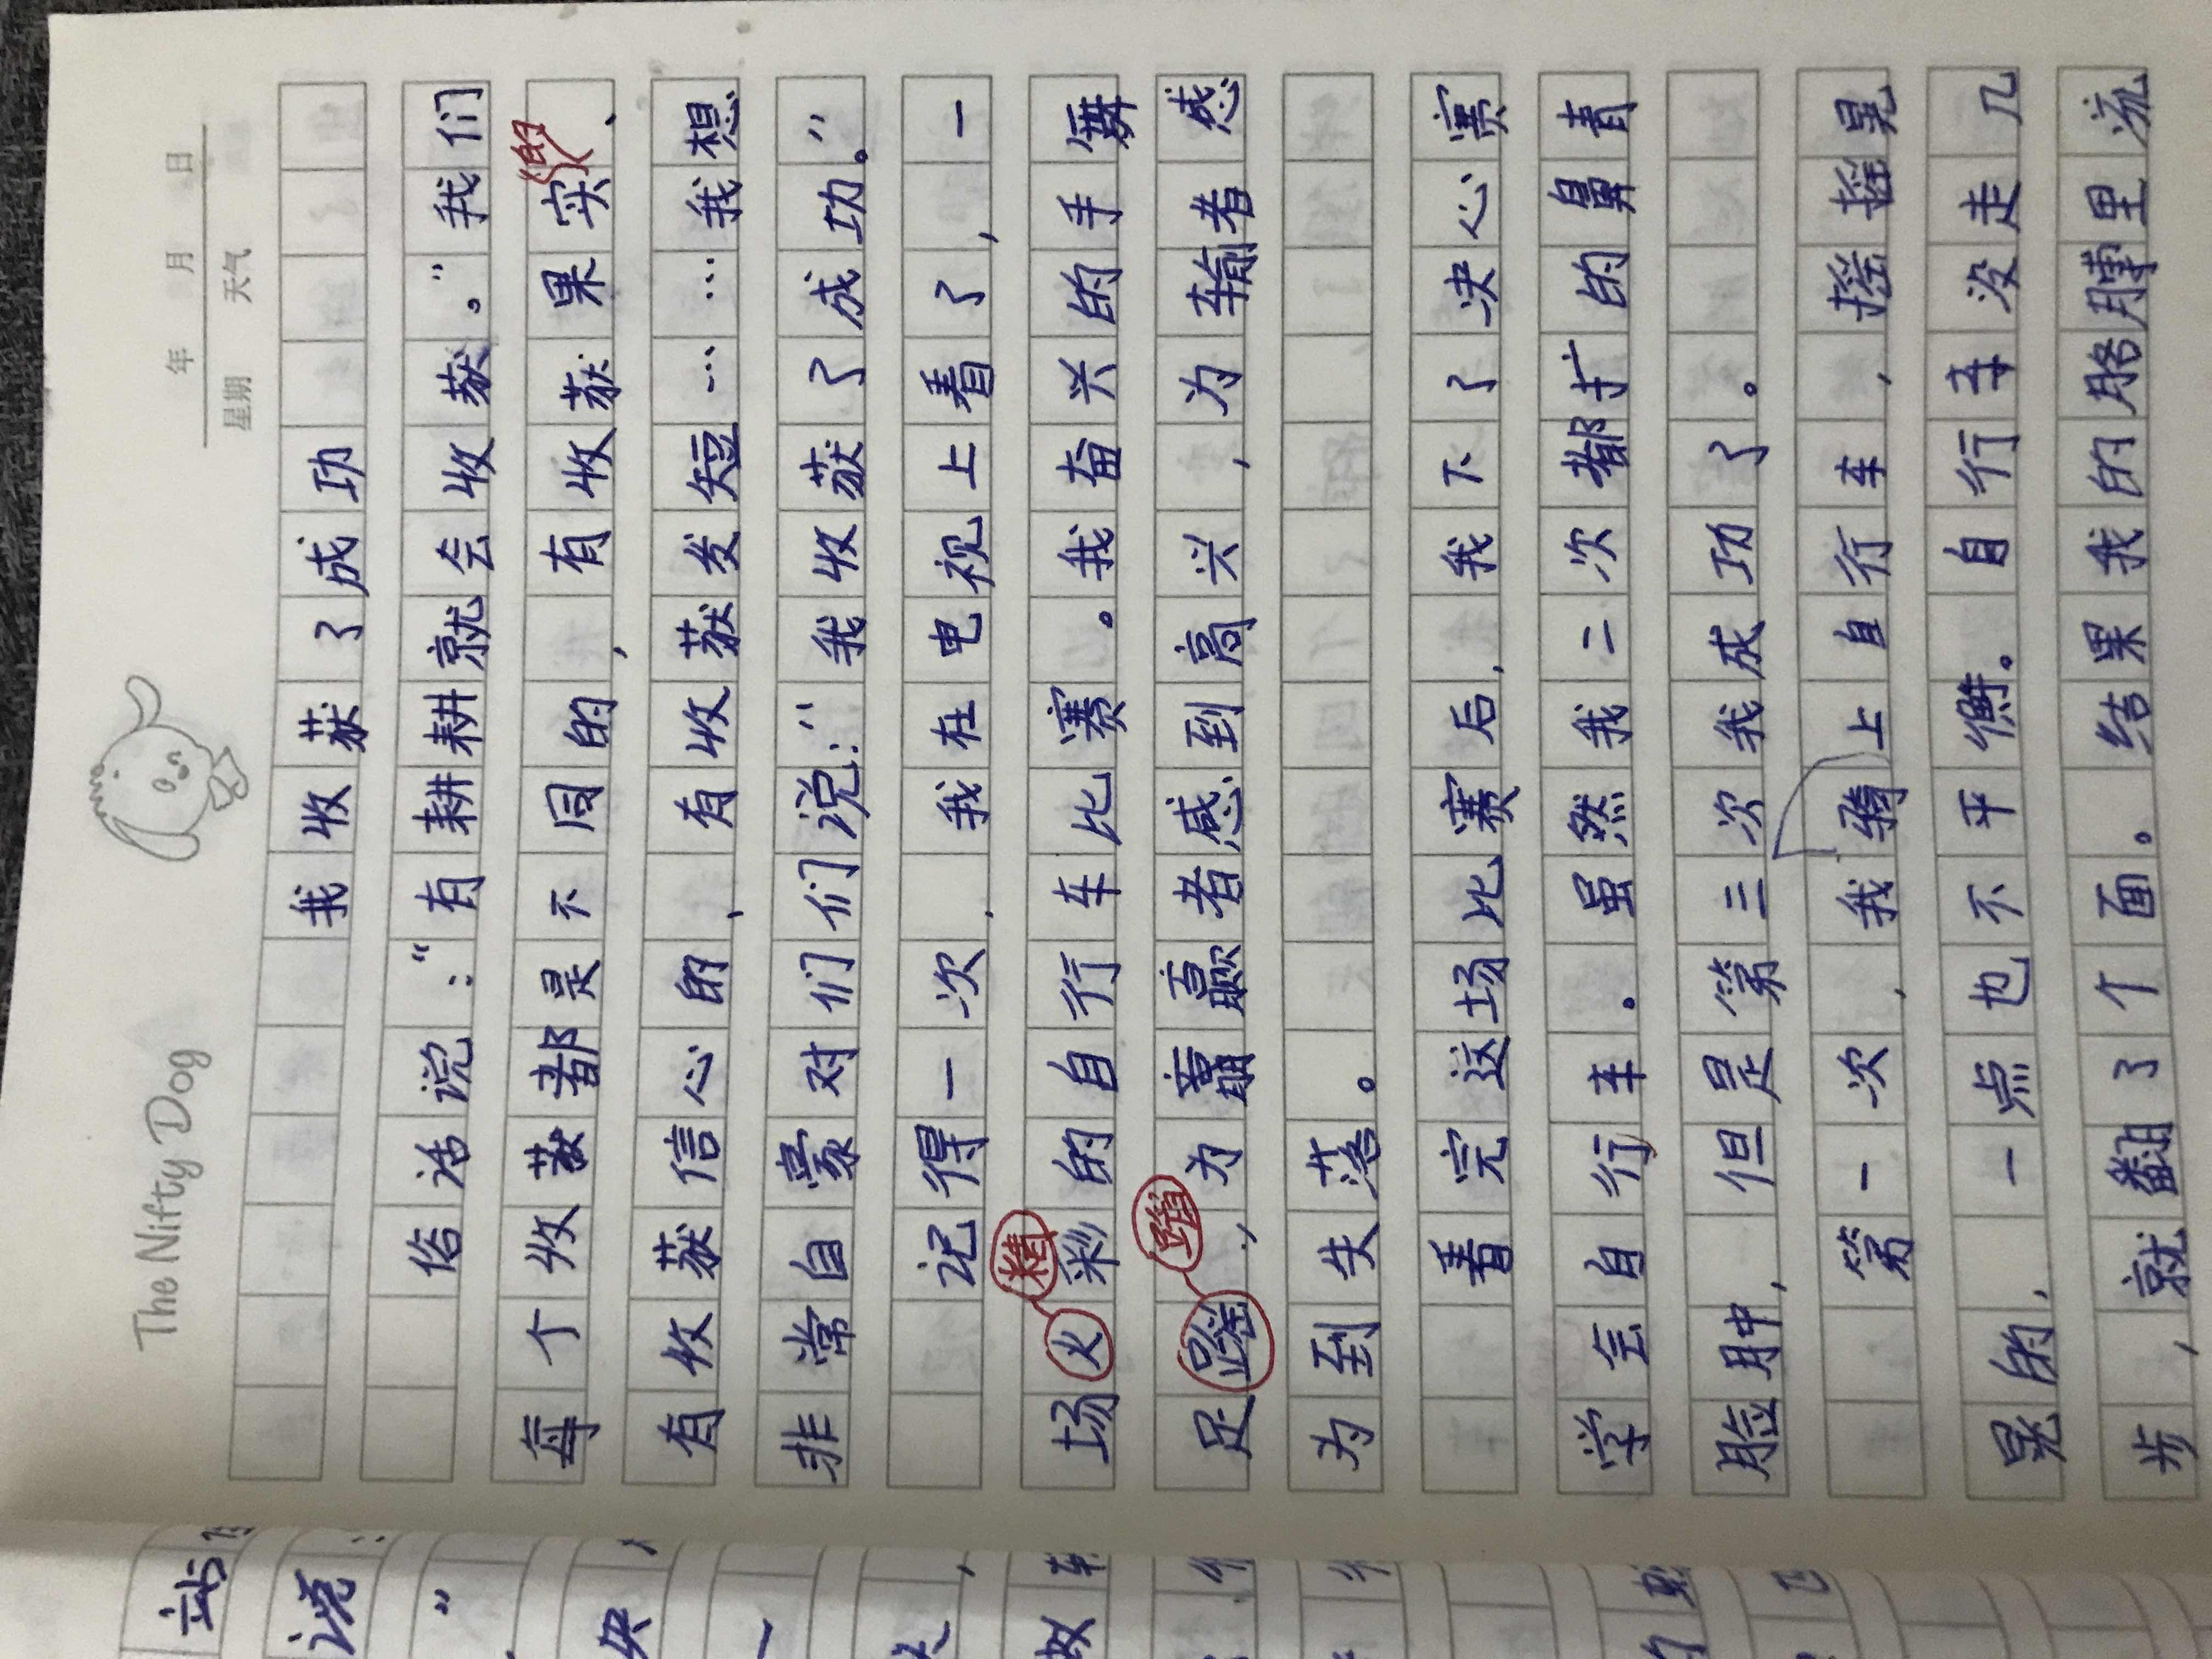 The Nifty Dog
年 月 日
星期 天气
我收获了成功
俗话说："有耕耕就会收获。"我们
每个收获都是不同的，有收获果实的、
有收获信心的、有收获发短……我想
非常自豪对们们说："我收获了成功。"
记得一次，我在电视上看了，一
场精彩的自行车比赛。我奋兴的手舞
足蹈，为赢者感到高兴，为输者感
为到失落。
看完这场比赛后，我下了决心赛
学会自行车。虽然我二次都扩的鼻青
脸肿，但是第三次我成功了。
第一次，我骑上自行车，摇摇晃
晃的，一点也不平衡。自行车没走几
步，就翻了个面。结果我的胳膊里流
站
说